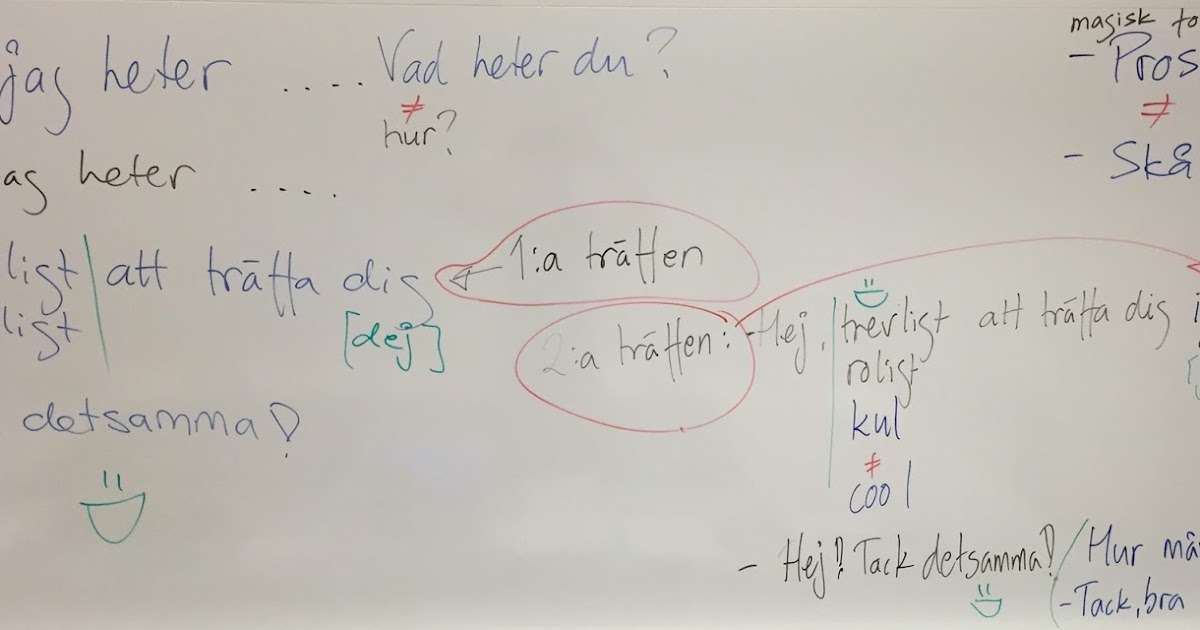 jag heter .... Vad heter du?
≠
hur?
ag heter ....
ligt att träffa dig ← 1:a träffen
ligt
[dej]
detsamma!
2:a träffen: - Hej, trevligt att träffa dig i
roligt
kul
≠
cool
- Hej! Tack detsamma! / Hur må
- Tack, bra
magisk to
- Pros
≠
- Skå